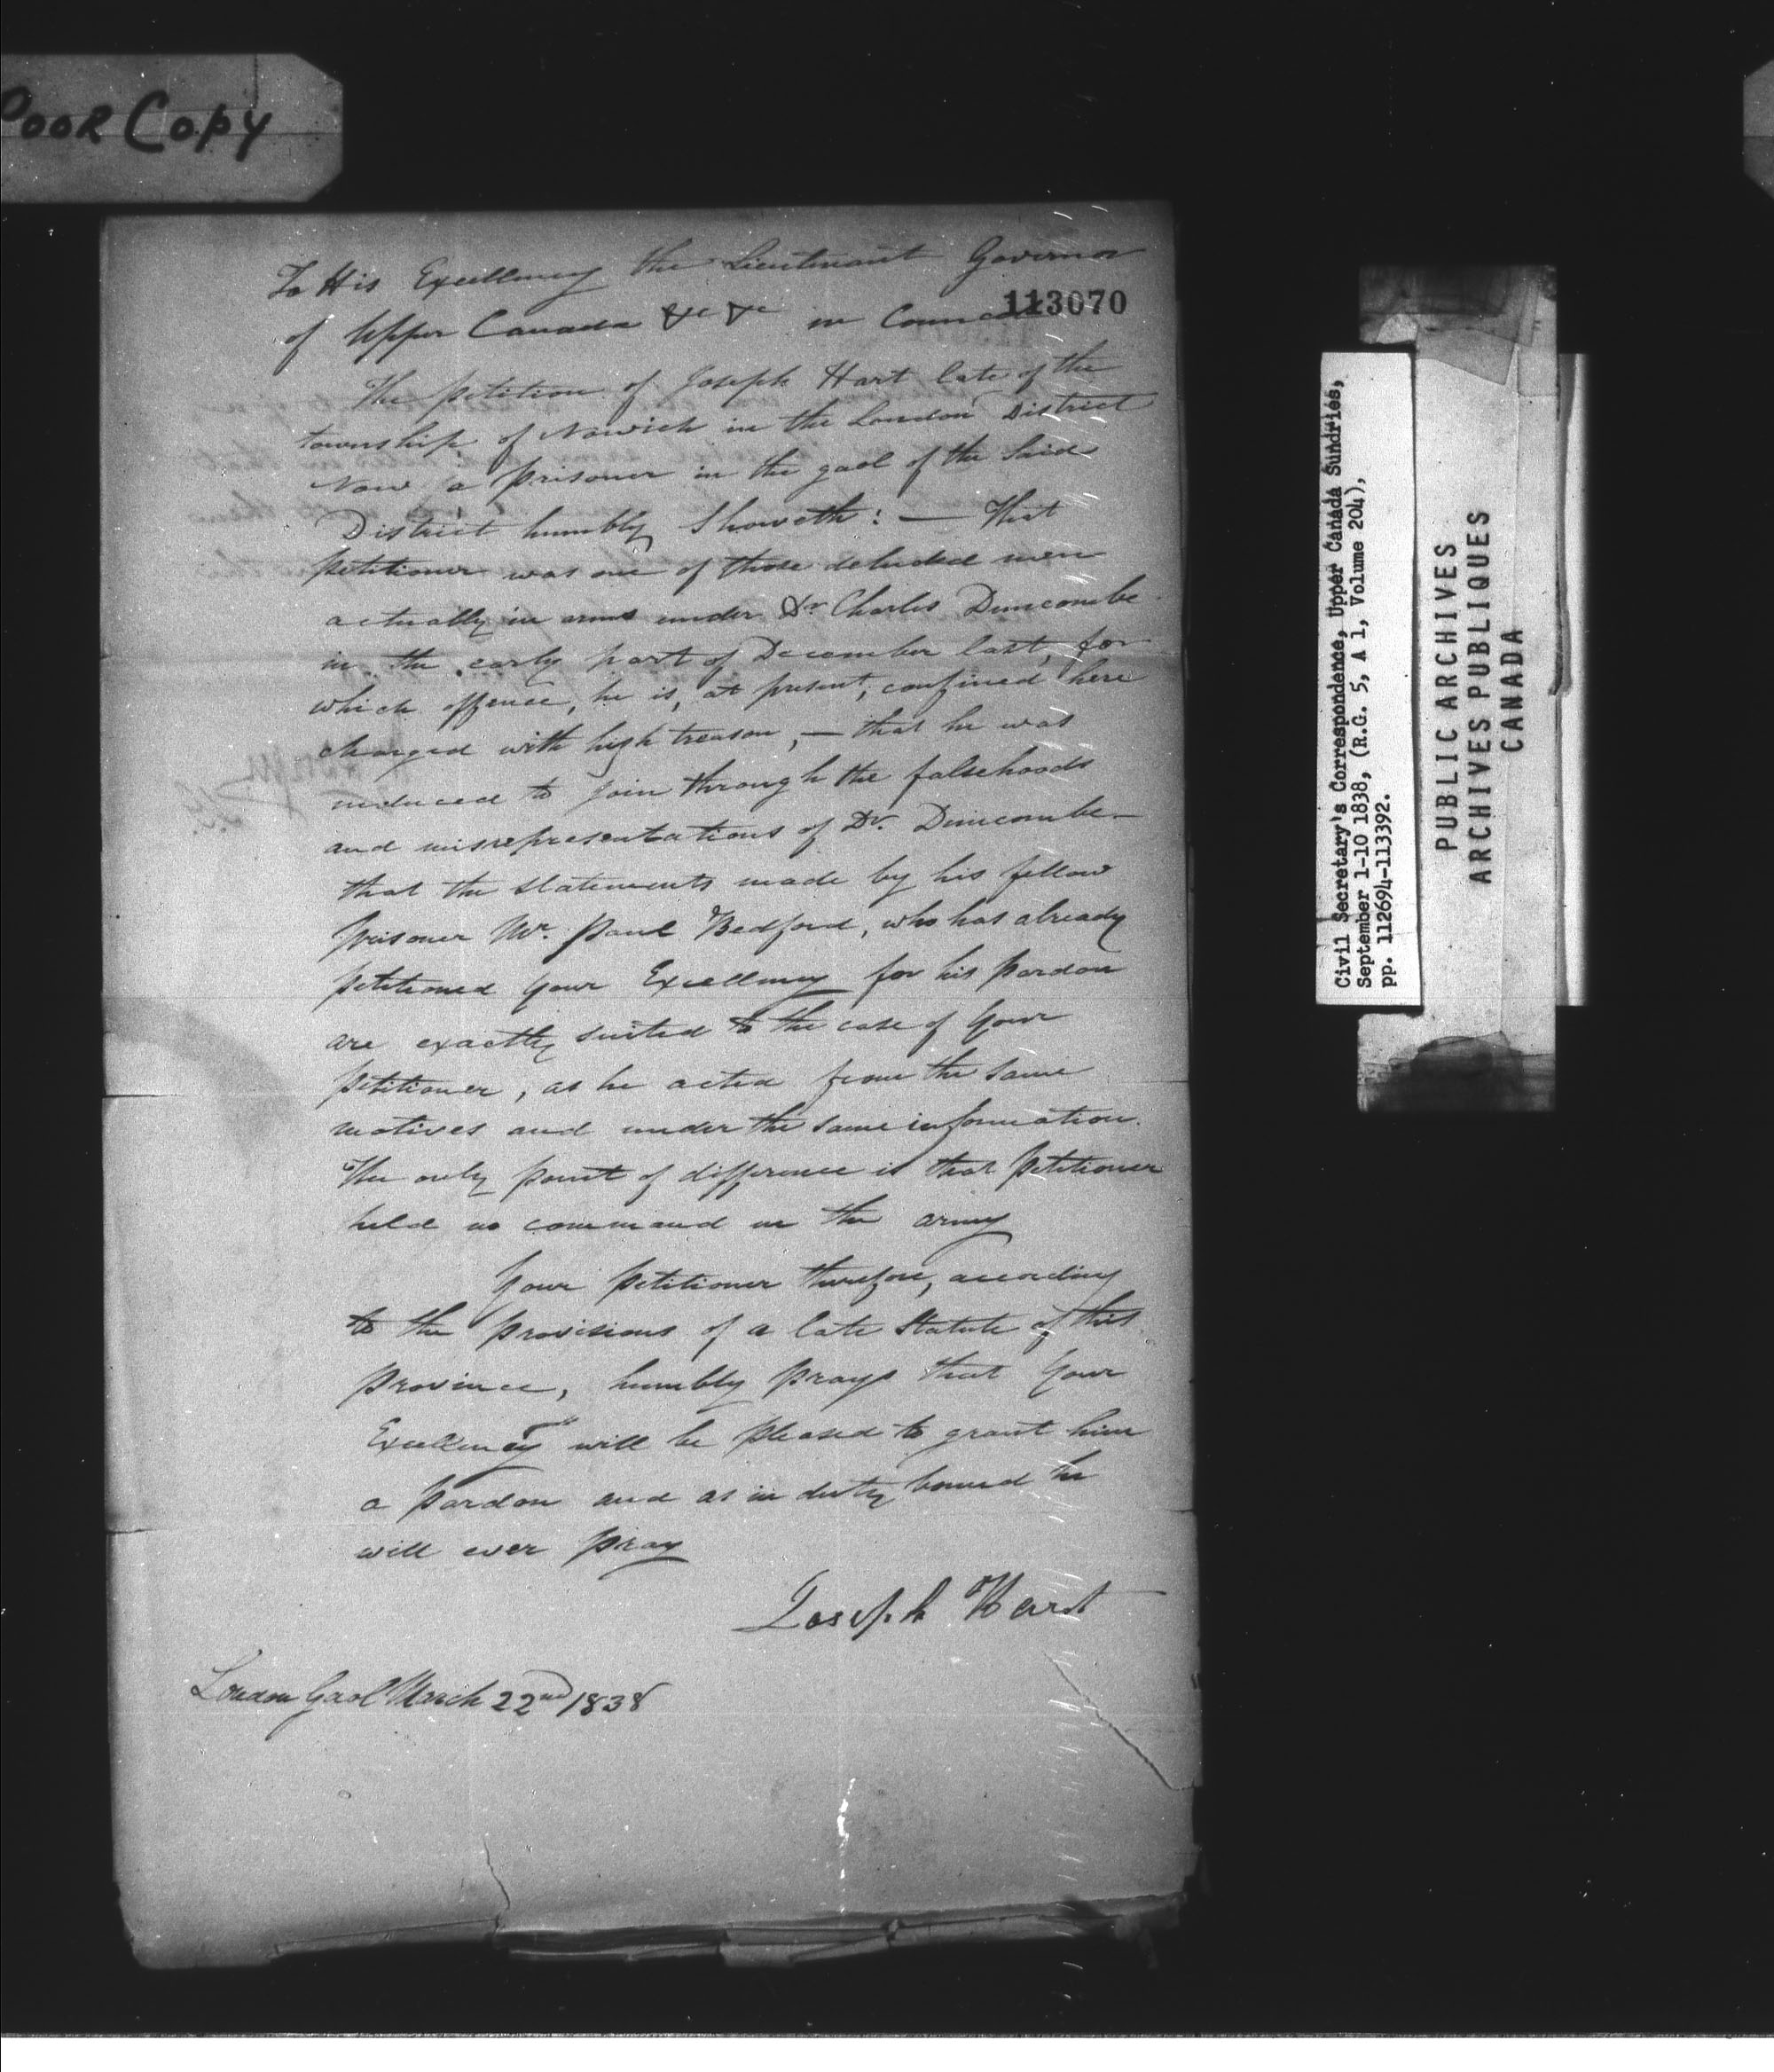 POOR COPY
To His Excellency the Lieutenant Governor
113070
of Upper Canada &c &c in Council
The petition of Joseph Hart late of the
township of Norwich in the London District
Now a prisoner in the gaol of the Said
District humbly Showeth: — That
petitioner was one of those deluded men
actually in arms under Dr Charles Duncombe
in the early part of December last, for
which offence, he is, at present, confined here
charged with high treason, — that he was
induced to join through the falsehoods
and misrepresentations of Dr. Duncombe—
that the statements made by his fellow
prisoner Mr. Paul Bedford, who has already
petitioned your Excellency for his pardon
are exactly suited to the case of your
petitioner, as he acted from the same
motives and under the same information.
The only point of difference is that petitioner
held no command in the army
Your petitioner therefore, according
to the provisions of a late Statute of this
province, humbly prays that your
Excellency will be pleased to grant him
a pardon and as in duty bound he
will ever pray
Joseph Hart
London Gaol March 22nd 1838
Civil Secretary's Correspondence, Upper Canada Sundries,
September 1-10 1838, (R.G. 5, A 1, Volume 204),
pp. 112694-113392.
PUBLIC ARCHIVES
ARCHIVES PUBLIQUES
CANADA